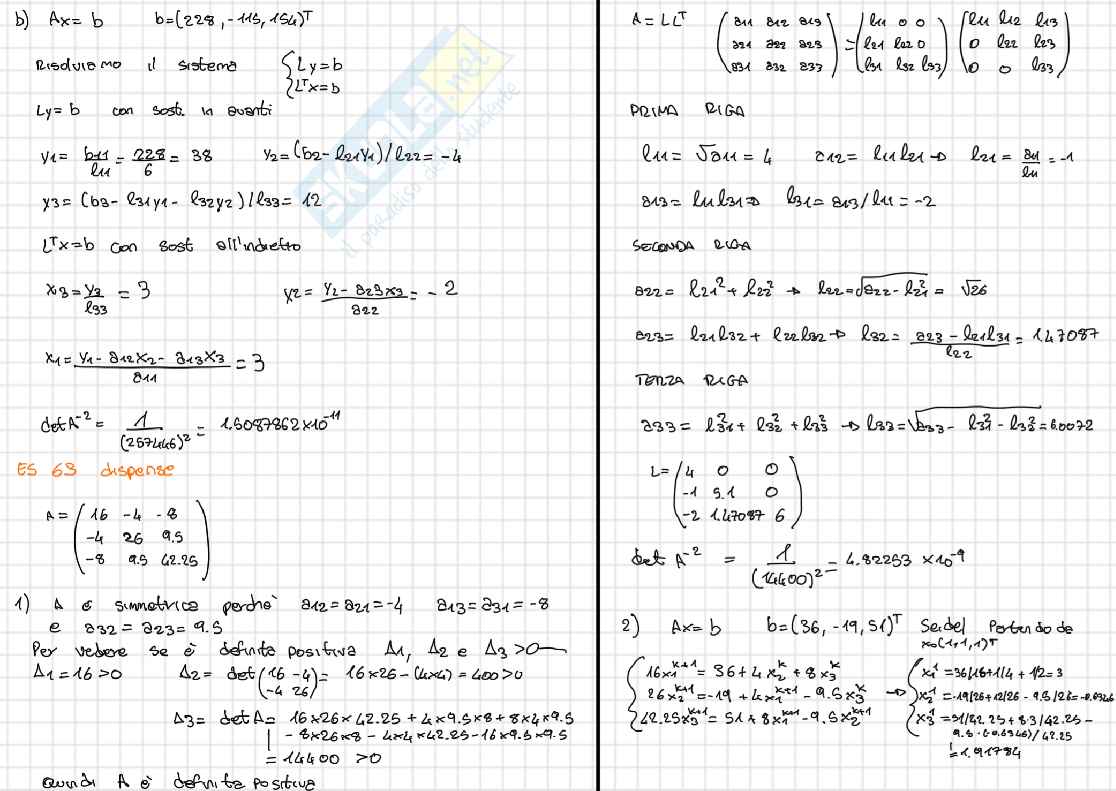 b) Ax = b b=(228, -115, 154)ᵀ
Risolviamo il sistema { Ly=b
Lᵀx=b
Ly=b con sost. in avanti
y1= b11/l11 = 228/6 = 38 y2=(b2- l21y1)/l22= -4
y3= (b3- l31y1- l32y2)/l33= 12
Lᵀx=b con sost all'indietro
x3= y3/l33 = 3 x2= (y2- a23x3)/a22 = -2
x1= (y1- a12x2- a13x3)/a11 = 3
det A⁻² = 1/(257446)² = 1.5087862×10⁻¹¹
ES 63 dispense
A= (16 -4 -8
-4 26 9.5
-8 9.5 42.25)
1) A è simmetrica perchè a12=a21=-4 a13=a31=-8
e a32=a23=9.5
Per vedere se è definita positiva Δ1, Δ2 e Δ3 >0
Δ1=16>0 Δ2= det(16 -4
-4 26)= 16×26-(4×4)=400>0
Δ3= det A= 16×26×42.25+4×9.5×8+8×4×9.5
- 8×26×8 - 4×4×42.25-16×9.5×9.5
= 14400 >0
quindi A è definita positiva
A = LLᵀ (a11 a12 a13
a21 a22 a23
a31 a32 a33) = (l11 0 0
l21 l22 0
l31 l32 l33) (l11 l12 l13
0 l22 l23
0 0 l33)
PRIMA RIGA
l11= √a11 = 4 a12= l11l21 → l21= a1/l11 = -1
a13= l11l31 ⇒ l31= a13/l11 = -2
SECONDA RIGA
a22= l21²+ l22² → l22=√(a22- l21²) = √26
a23= l21l32+ l22l32 → l32= (a23 - l21l31)/l22 = 1.47087
TERZA RIGA
a33= l31²+ l32² + l33² → l33=√(a33- l31² - l33²)=6.0072
L= (4 0 0
-1 5.1 0
-2 1.47087 6)
det A⁻² = 1/(14400)² = 4.82253 ×10⁻⁹
2) Ax=b b=(36, -19, 51)ᵀ Seidel Partendo da
x0(1,1,1)ᵀ
{ 16x1ᵏ⁺¹ = 36+4x2ᵏ + 8x3ᵏ
26x2ᵏ⁺¹=-19 + 4x1ᵏ⁺¹ - 9.5x3ᵏ
42.25x3ᵏ⁺¹= 51+8x1ᵏ⁺¹-9.5x2ᵏ⁺¹
→ { x1¹ =36/16+1/4 + 1/2=3
x2¹ =-19/26+12/26 - 9.5/26=-0.6346
x3¹ =51/42.25 + 8·3/42.25 -
9.5·(-0.6346)/42.25
=1.91784
skuola.net
il paradiso dello studente